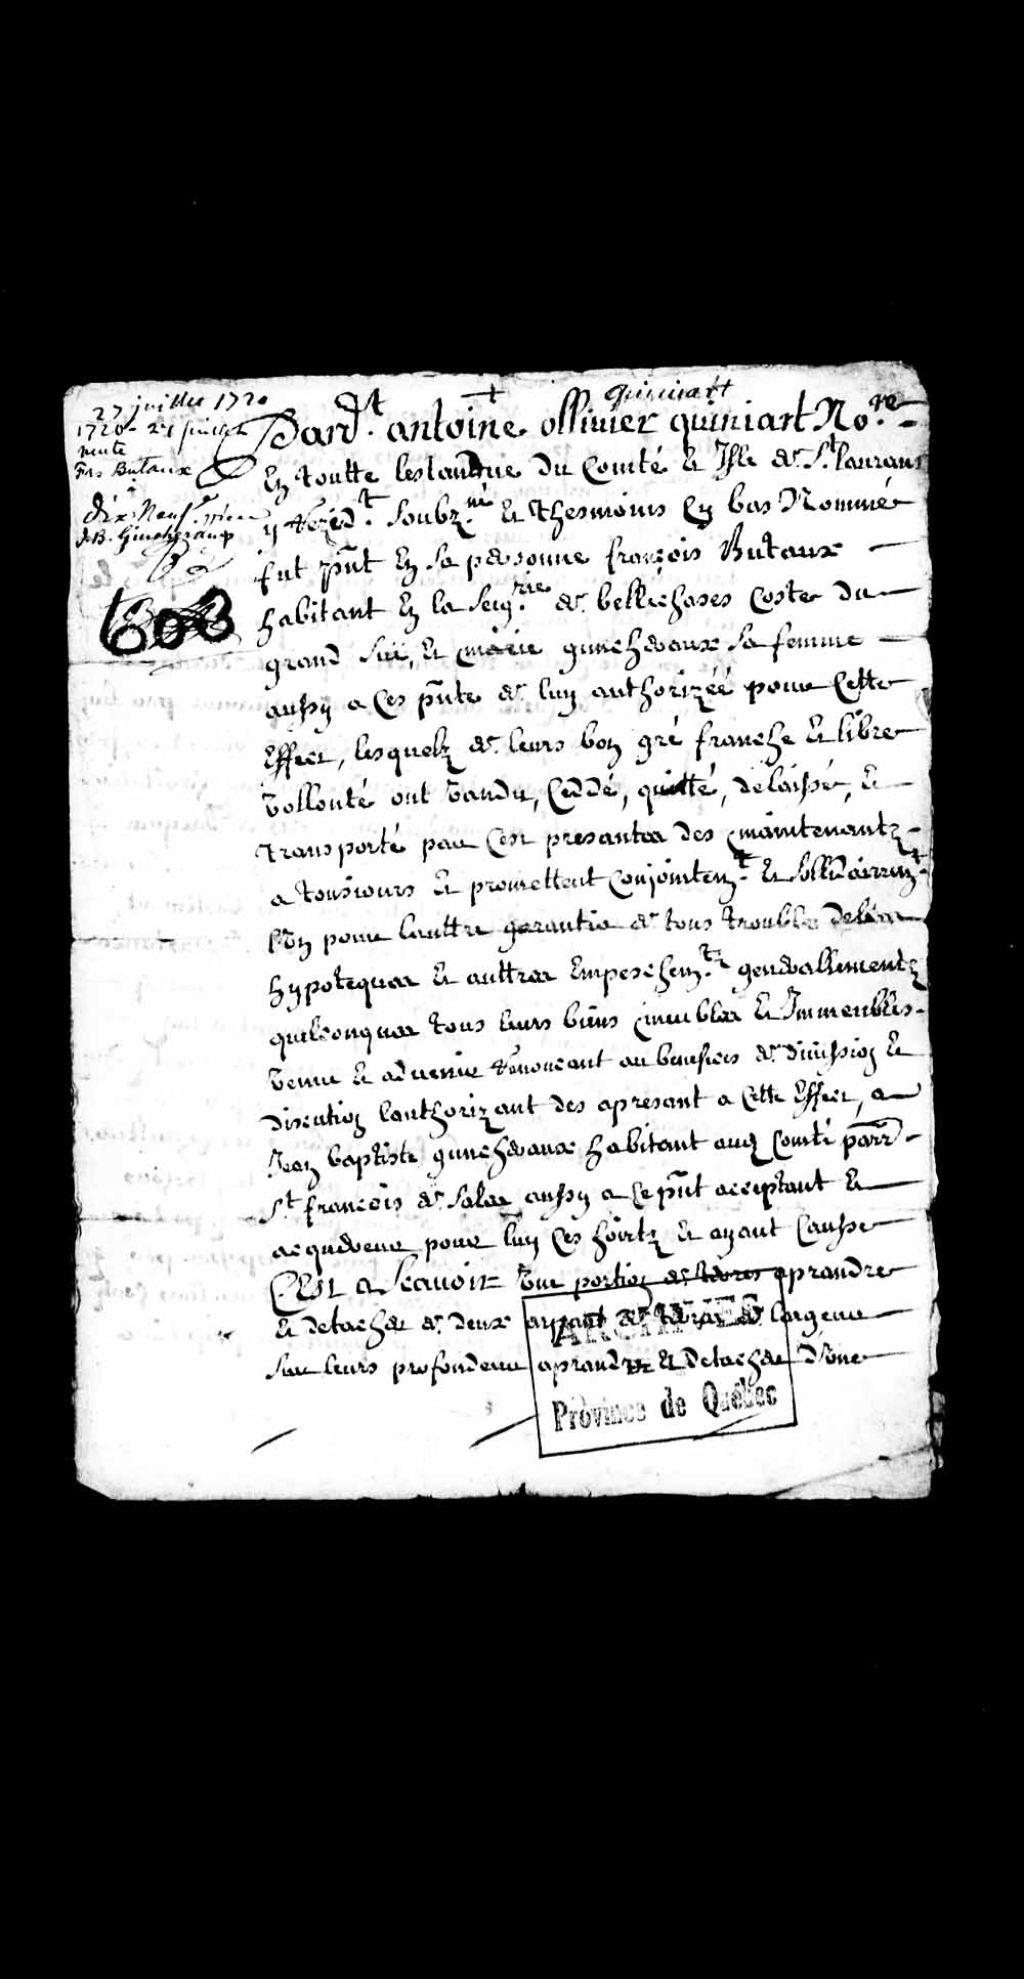 27 juillet 1720
quiniart
1720 - 27 juillet
vente
Frs Butaux
à
dix Neuf
J.B. Guicheraux
603
Pard.t antoine ollivier quiniart No.re
En toutte lestandue du Comté & Isle de St Laurans
y Rezid.t Soubz.né & thesmoins En bas Nommés
fut pñt En sa personne françois Butaux
habitant En la Seig.rie de bellechases Coste du
grand Sü, & marie guichevaux sa femme
aussy a Ces pñte de luy authorizéé pour Cette
Effect, lesquelz de leurs bon gré franche & libre
Vollonté ont Vandu, Ceddé, quitté, délaissé, &
transporté par Cest presantes des maintenantz
a tousiours & promettent Conjointem.t & Sollidairem.t
l'un pour lauttre garantie de tous troubles
hypotequer & auttres Empeschem.tz generallementz
quelconques tous leurs biens meubles & Immeubles
Venu & advenir Renonceant au benefices de divission &
discution lauthorizant des apresant a Cette Effect, a
Jean baptiste guichevaux habitant aud Comté parr
St françois de Sales aussy a Ce pñt acceptant &
acquereur pour luy Ces hoirtz & ayant Causse
C'Est a Scavoir Une portion de terres aprandre
& detacher de deux arpant de terres de largeur
sur leurs profondeur aprandre & detacher d'Une
ARCHIVES
Province de Québec